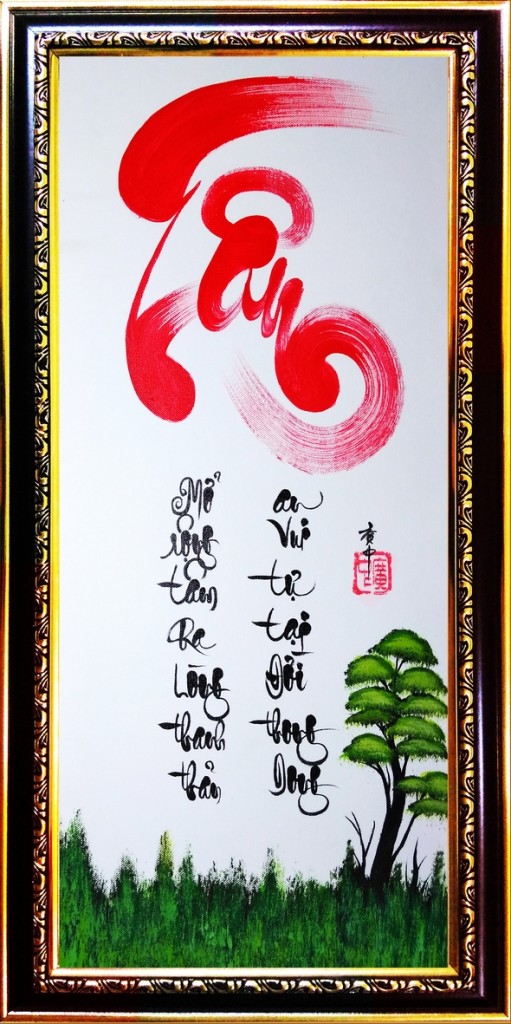 Tâm
Mở rộng tâm Ra Lòng thanh thản
an Vui tự tại Đời thong Dong